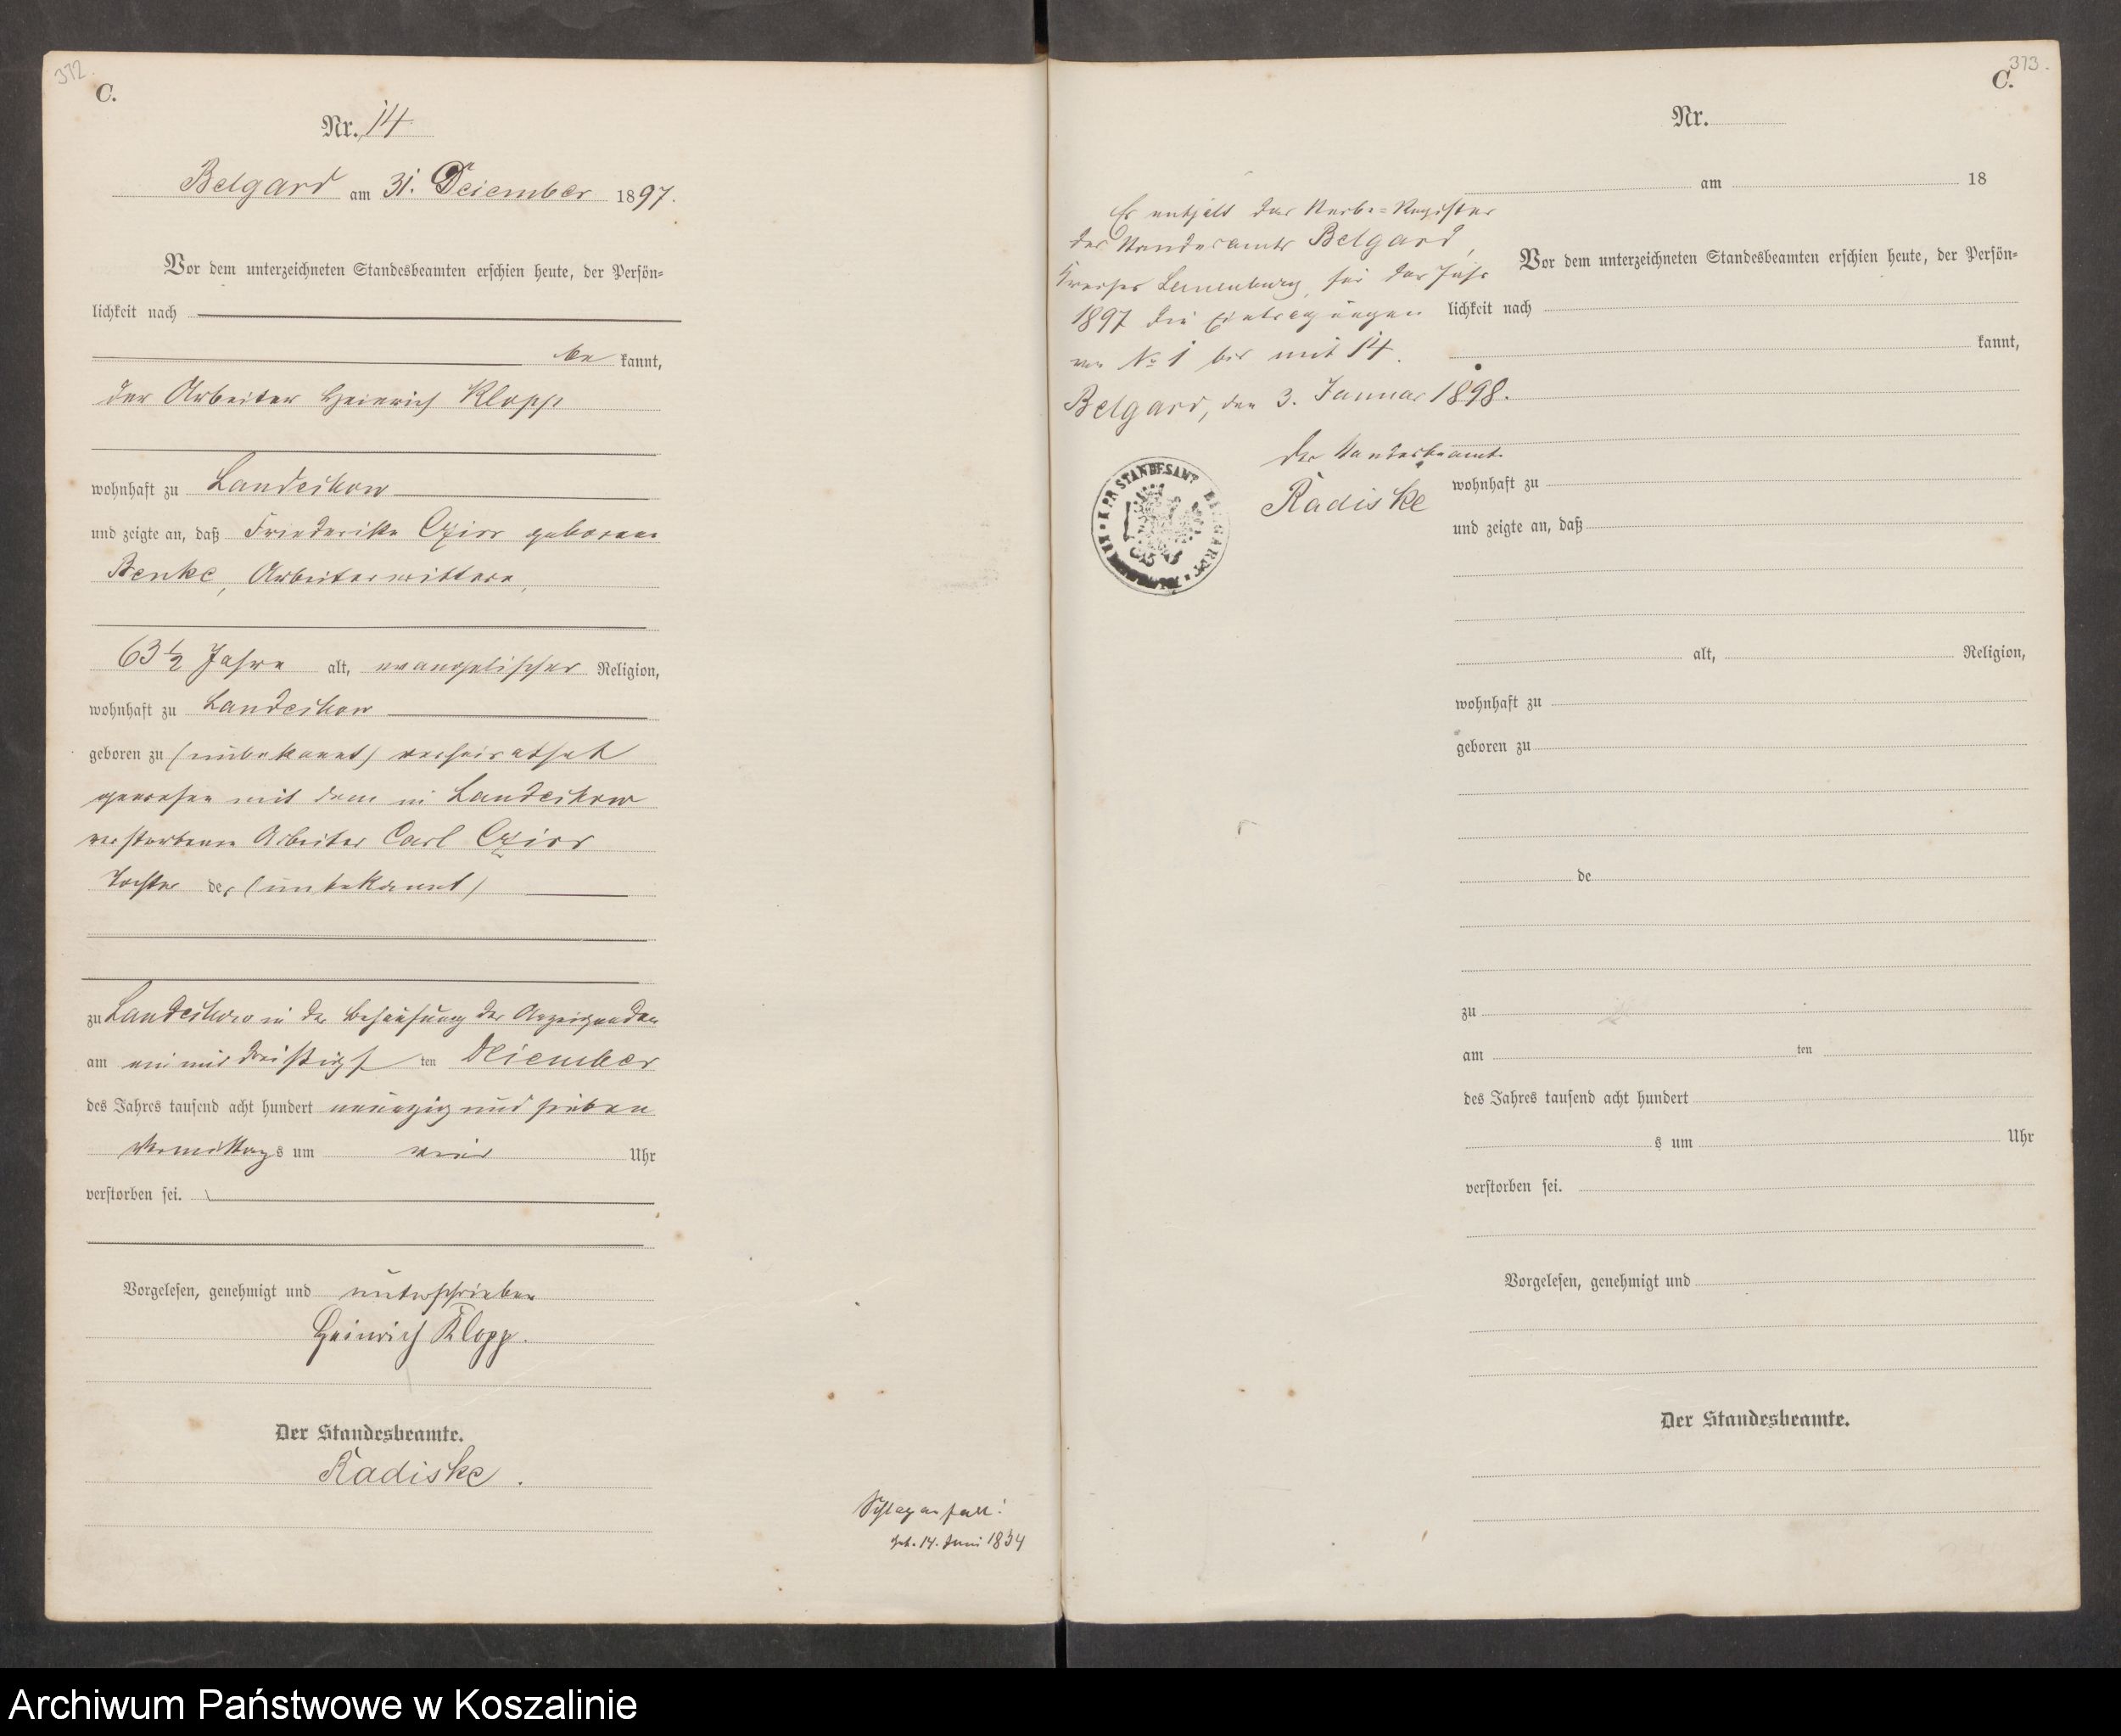 372.
C.
Nr. 14
Belgard am 31. Dezember 1897.
Vor dem unterzeichneten Standesbeamten erschien heute, der Persön-
lichkeit nach
be kannt,
der Arbeiter Heinrich Klopp
wohnhaft zu Landechow
und zeigte an, daß Friederike geborene
Benke, Arbeiterwittwe,
63 1/2 Jahre alt, evangelischer Religion,
wohnhaft zu Landechow
geboren zu (unbekannt) verheirathet
gewesen mit dem in Landechow
verstorbenen Arbeiter Carl
Tochter der (unbekannt)
zu Landechow in der Behausung des Anzeigenden
am ein und dreißigs ten Dezember
des Jahres tausend acht hundert neunzig und sieben
Vormittags um vier Uhr
verstorben sei.
Vorgelesen, genehmigt und unterschrieben
Heinrich Klopp.
Der Standesbeamte.
Radiske.
Schlaganfall!
geb. 14. Juni 1834
373.
C.
Nr.
am 18
Es enthält das Sterbe-Register
des Standesamts Belgard,
Kreises Lauenburg, für das Jahr
1897 die Eintragungen
von No 1 bis mit 14.
Belgard, den 3. Januar 1898.
Der Standesbeamte
Radiske
K. PR. STANDESAMT BELGARD
Vor dem unterzeichneten Standesbeamten erschien heute, der Persön-
lichkeit nach
kannt,
wohnhaft zu
und zeigte an, daß
alt, Religion,
wohnhaft zu
geboren zu
de
zu
am ten
des Jahres tausend acht hundert
s um Uhr
verstorben sei.
Vorgelesen, genehmigt und
Der Standesbeamte.
Archiwum Państwowe w Koszalinie